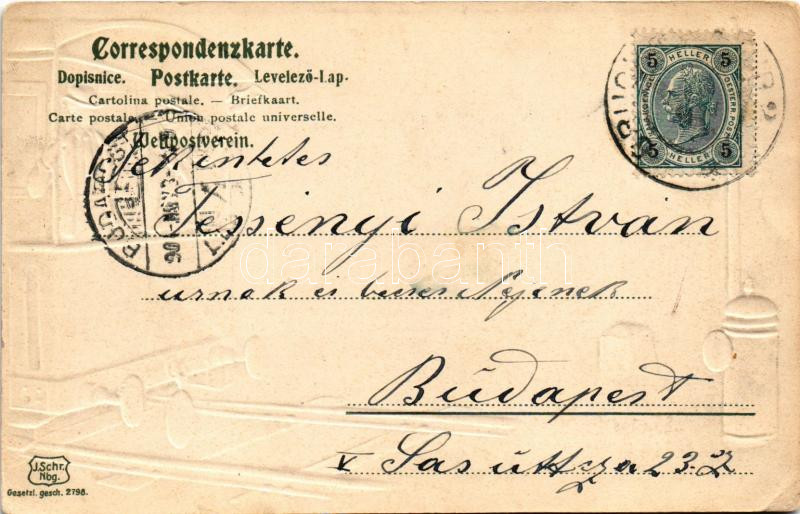 Correspondenzkarte.
Dopisnice. Postkarte. Levelező-Lap.
Cartolina postale. — Briefkaart.
Carte postale. Union postale universelle.
Weltpostverein.
5 HELLER 5
5 HELLER 5
OESTERR. POST
BUDAPEST
Tekintetes
Jessényi István
urnak és becses Nejének
Budapest
V Sas úttcza 23.
databanth
J.Schr.
Nbg.
Gesetzl. gesch. 2798.